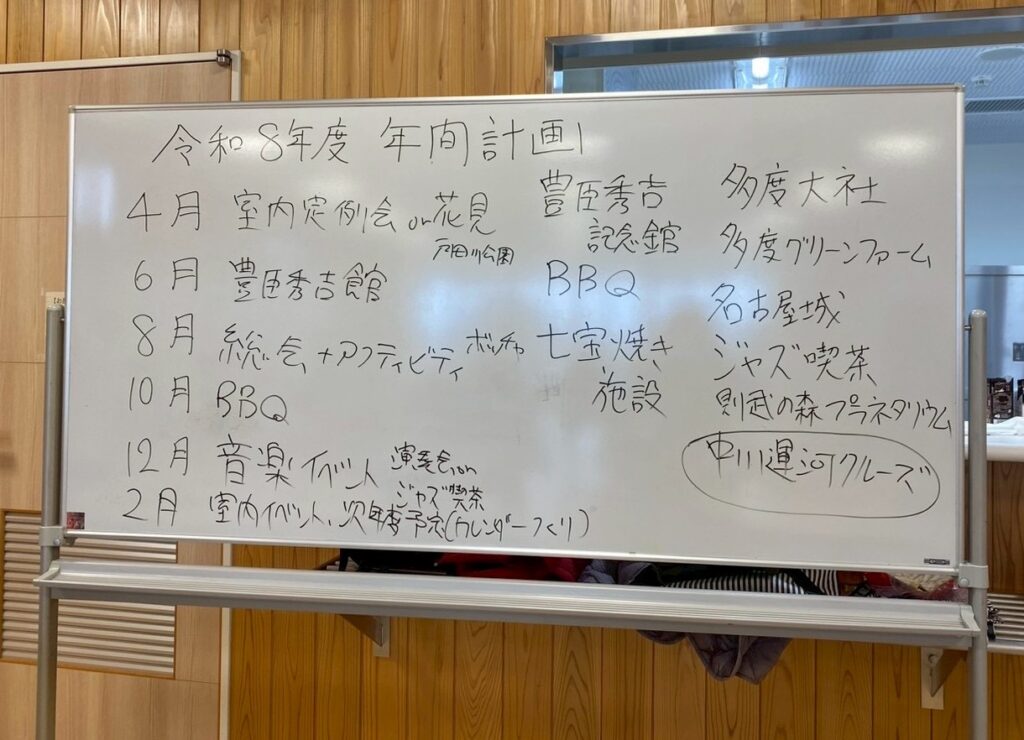 令和8年度 年間計画
4月 室内定例会 or 花見
戸田川公園
6月 豊臣秀吉館
8月 総会 + アクティビティ ボッチャ
10月 BBQ
12月 音楽イベント 演奏会 or
ジャズ喫茶
2月 室内イベント、次年度予定(カレンダーつくり)
豊臣秀吉
記念館
BBQ
七宝焼き
施設
多度大社
多度グリーンファーム
名古屋城
ジャズ喫茶
則武の森プラネタリウム
中川運河クルーズ